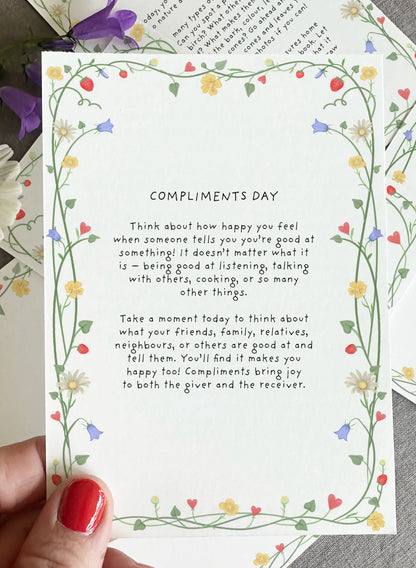 day, yo
a nature a
many types o
Can you spot a
birch? What other
What makes them
the bark, colour,
cones? Go ahead and
cones and leaves
photos if you can!
tures home
books! Let
at?
COMPLIMENTS DAY
Think about how happy you feel
when someone tells you you're good at
something! It doesn't matter what it
is – being good at listening, talking
with others, cooking, or so many
other things.
Take a moment today to think about
what your friends, family, relatives,
neighbours, or others are good at and
tell them. You'll find it makes you
happy too! Compliments bring joy
to both the giver and the receiver.